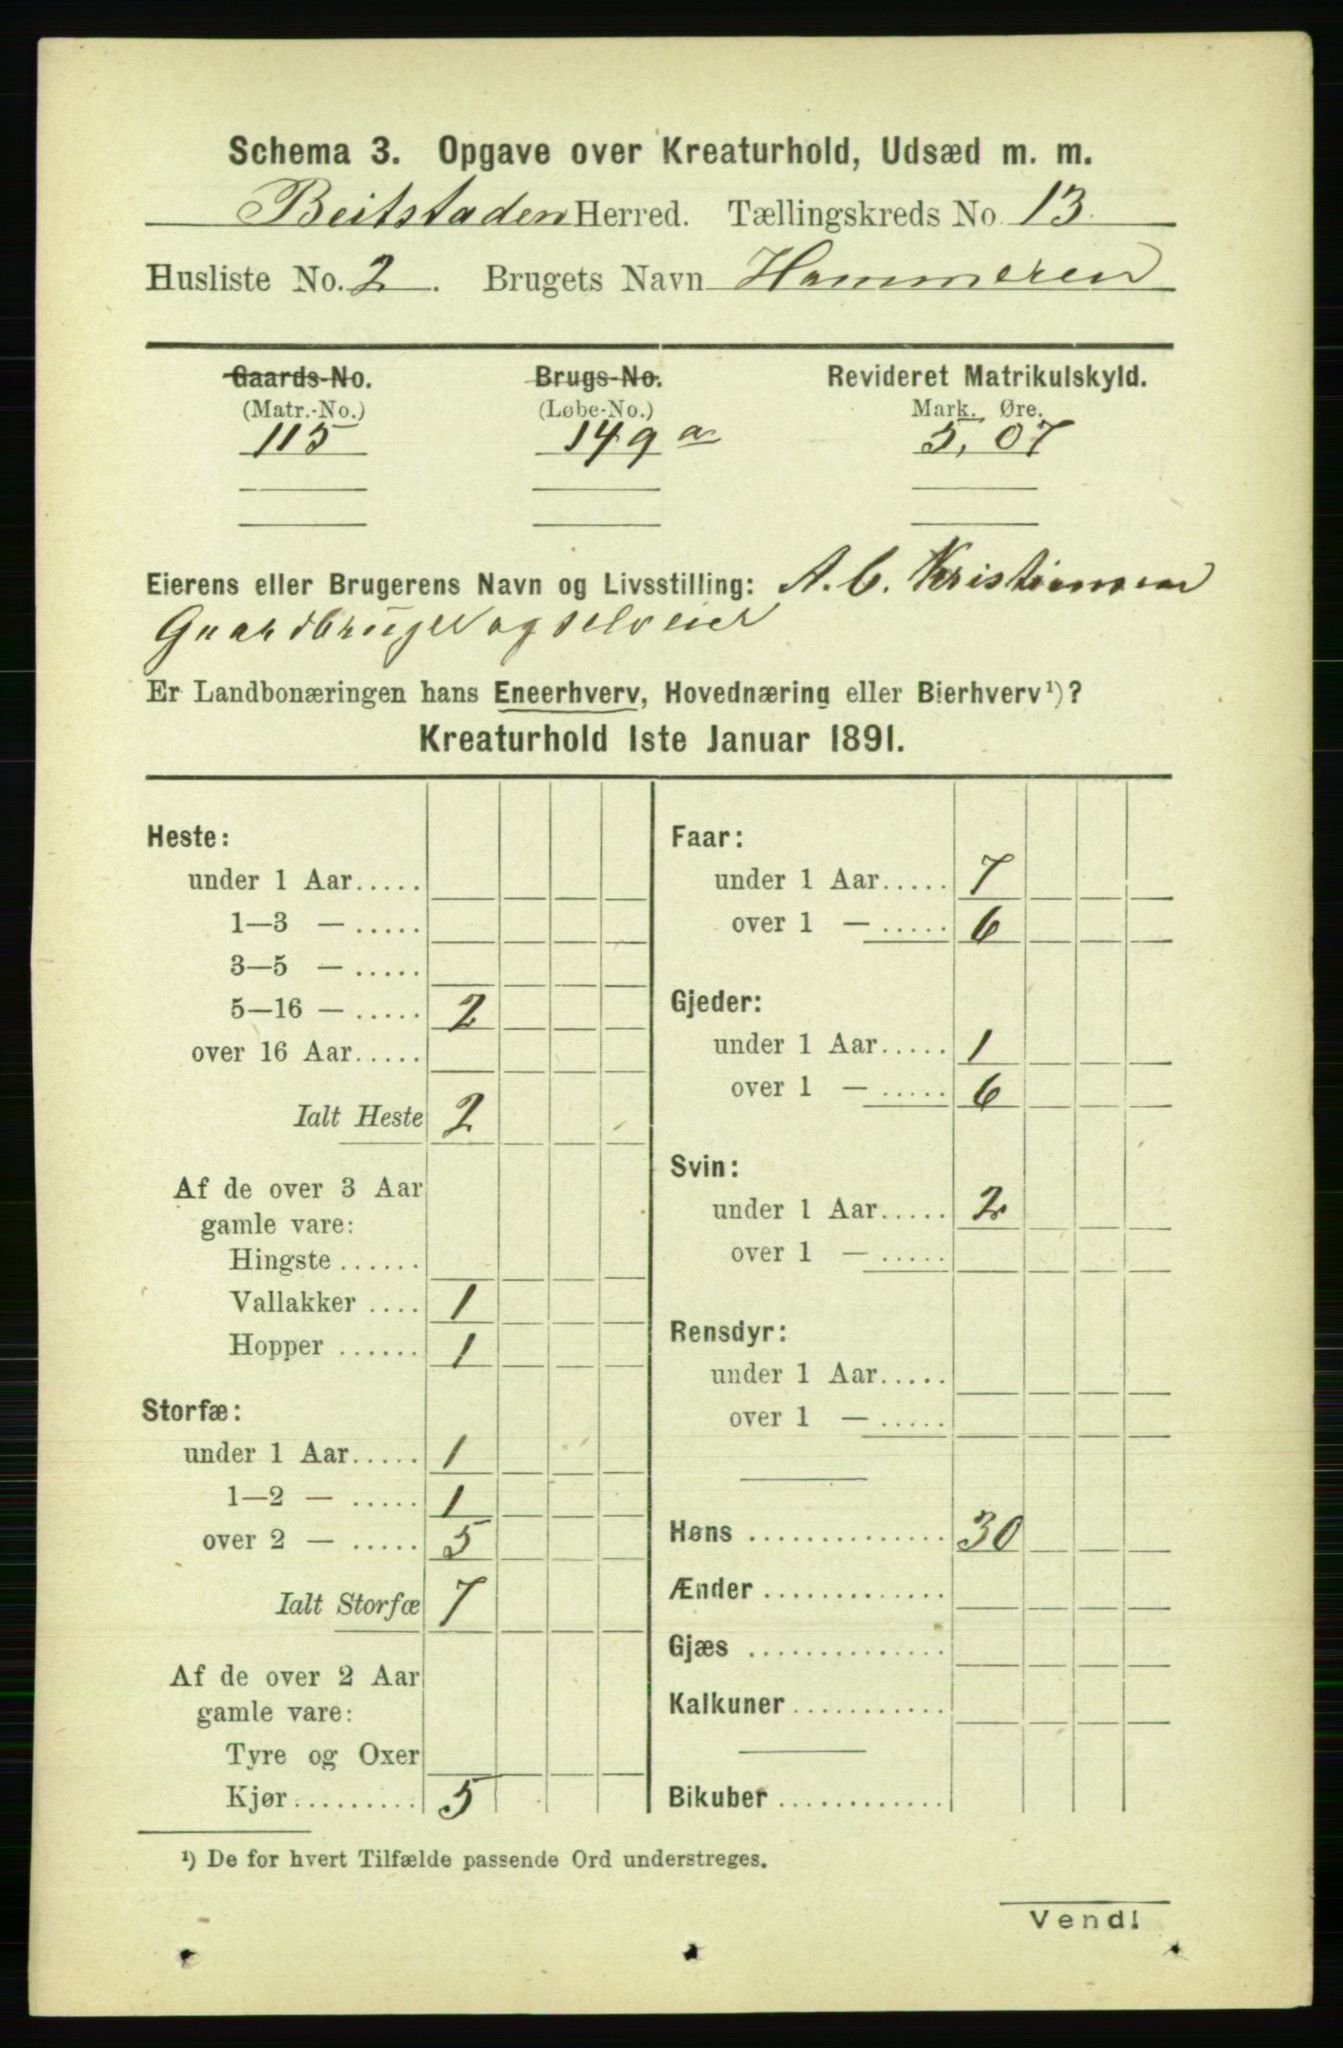 Schema 3. Opgave over Kreaturhold, Udsæd m. m.
Beitstaden Herred. Tællingskreds No. 13.
Husliste No. 2. Brugets Navn Hammeren
Gaards-No. Brugs-No. Revideret Matrikulskyld.
(Matr.-No.) (Løbe-No.) Mark. Øre.
115 149 a 5, 07
Eierens eller Brugerens Navn og Livsstilling: A. C. Kristiansen
Gaardbruger og selveier
Er Landbonæringen hans Eneerhverv, Hovednæring eller Bierhverv¹)?
Kreaturhold 1ste Januar 1891.
Heste:
under 1 Aar.....
1—3 — .....
3—5 — .....
5—16 — ..... 2
over 16 Aar.....
Ialt Heste 2
Af de over 3 Aar
gamle vare:
Hingste ......
Vallakker .... 1
Hopper ...... 1
Storfæ:
under 1 Aar..... 1
1—2 — ..... 1
over 2 — ..... 5
Ialt Storfæ 7
Af de over 2 Aar
gamle vare:
Tyre og Oxer
Kjør......... 5
Faar:
under 1 Aar..... 7
over 1 — ..... 6
Gjeder:
under 1 Aar..... 1
over 1 — ..... 6
Svin:
under 1 Aar..... 2
over 1 — .....
Rensdyr:
under 1 Aar.....
over 1 — .....
Høns .............. 30
Ænder .............
Gjæs ..............
Kalkuner ...........
Bikuber ............
¹) De for hvert Tilfælde passende Ord understreges.
Vend!